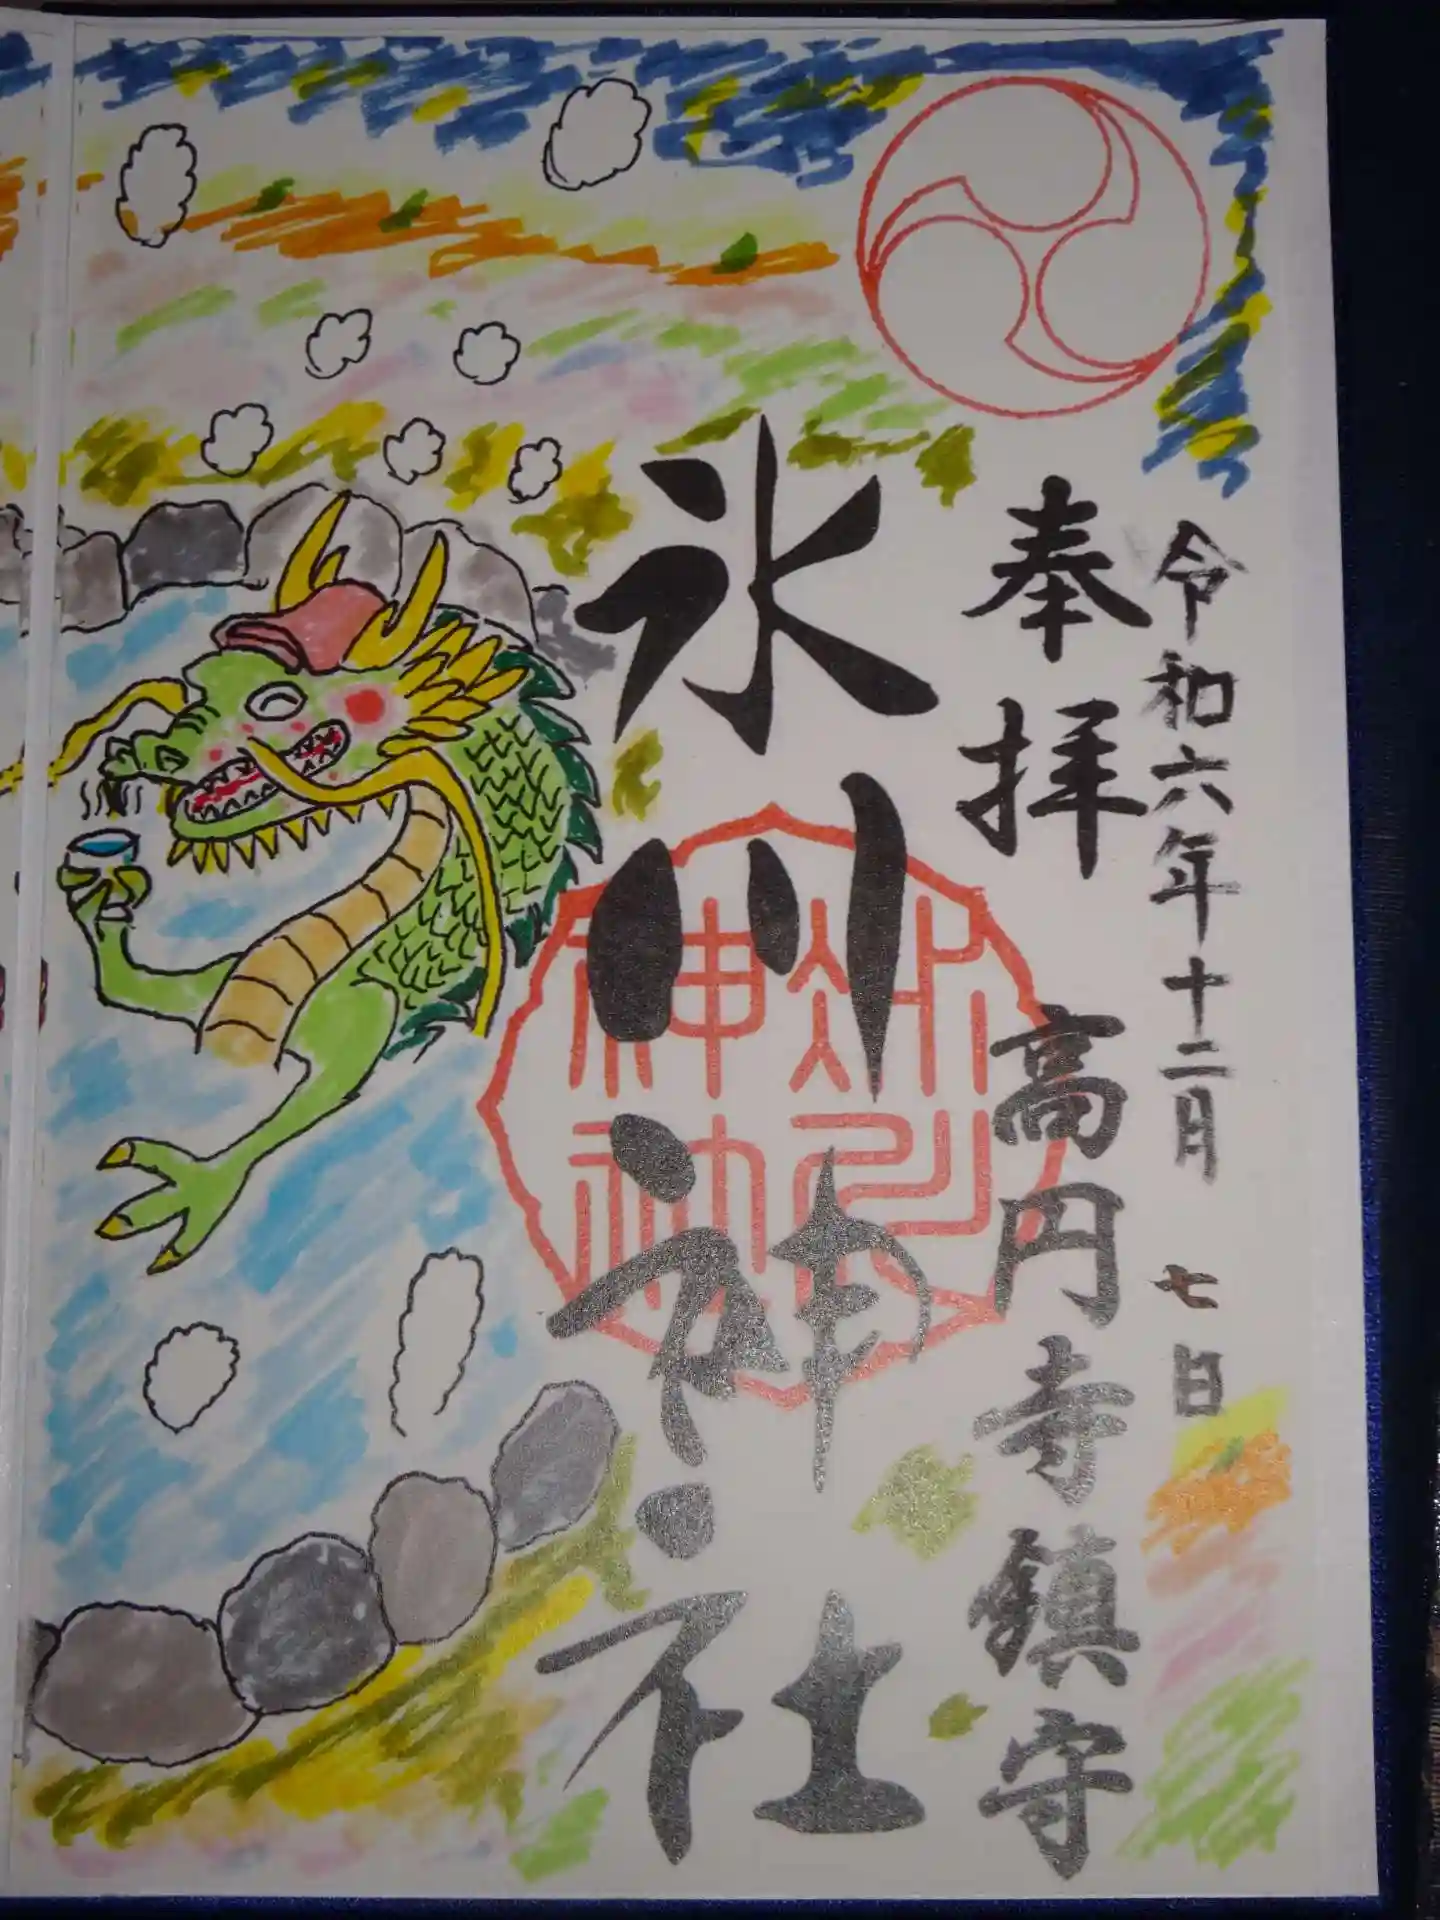 令和六年十二月七日
奉拝 高円寺鎮守
氷川神社